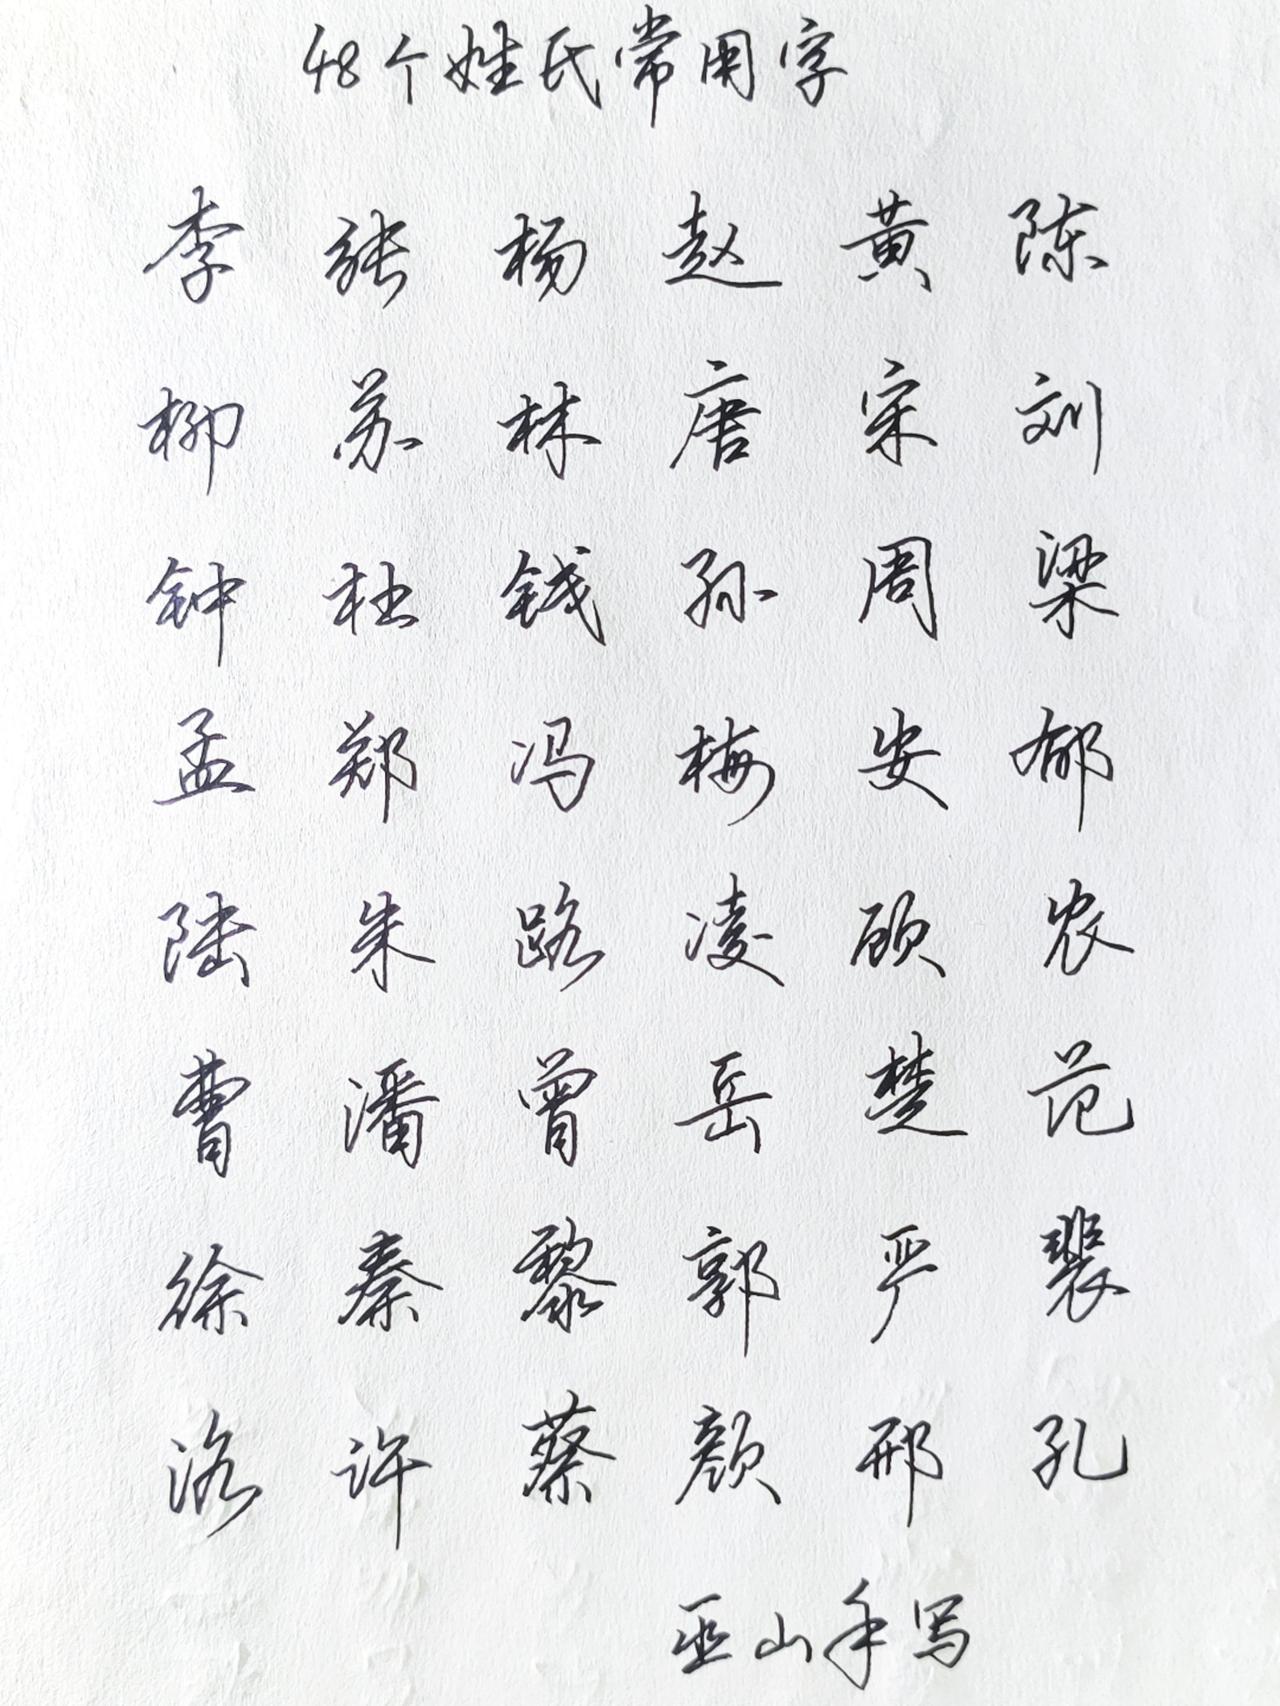 48个姓氏常用字
李 张 杨 赵 黄 陈
柳 苏 林 唐 宋 刘
钟 杜 钱 孙 周 梁
孟 郑 冯 梅 安 郁
陆 朱 路 凌 顾 农
曹 潘 曾 岳 楚 范
徐 秦 黎 郭 严 裴
洛 许 蔡 颜 邢 孔
巫山手写